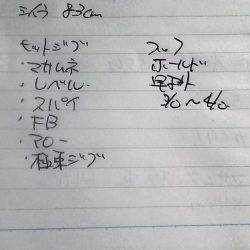 シイラ 83cm
モットジブ
・マサムネ
・レベル
・スパイ
・FB
・アロー
・極東ジブ
フック
ホールド
早掛
3/0〜4/0